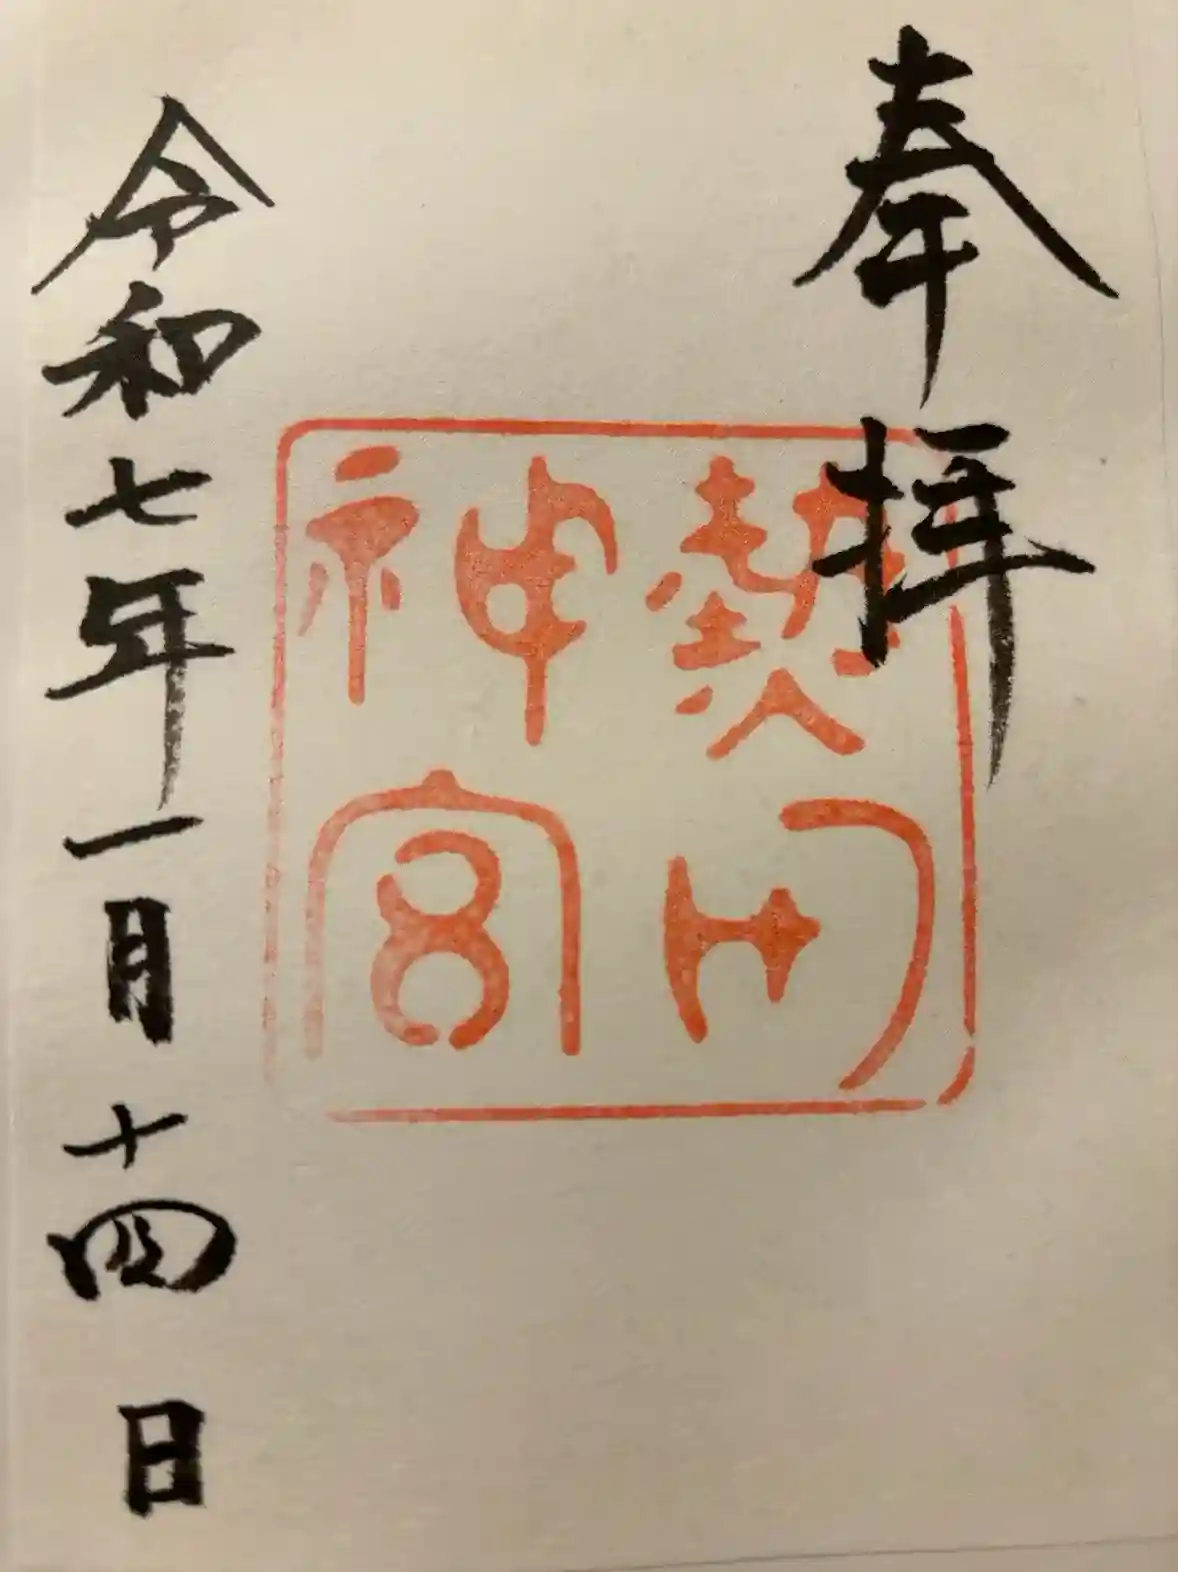 奉拝
熱田
神宮
令和七年一月十四日